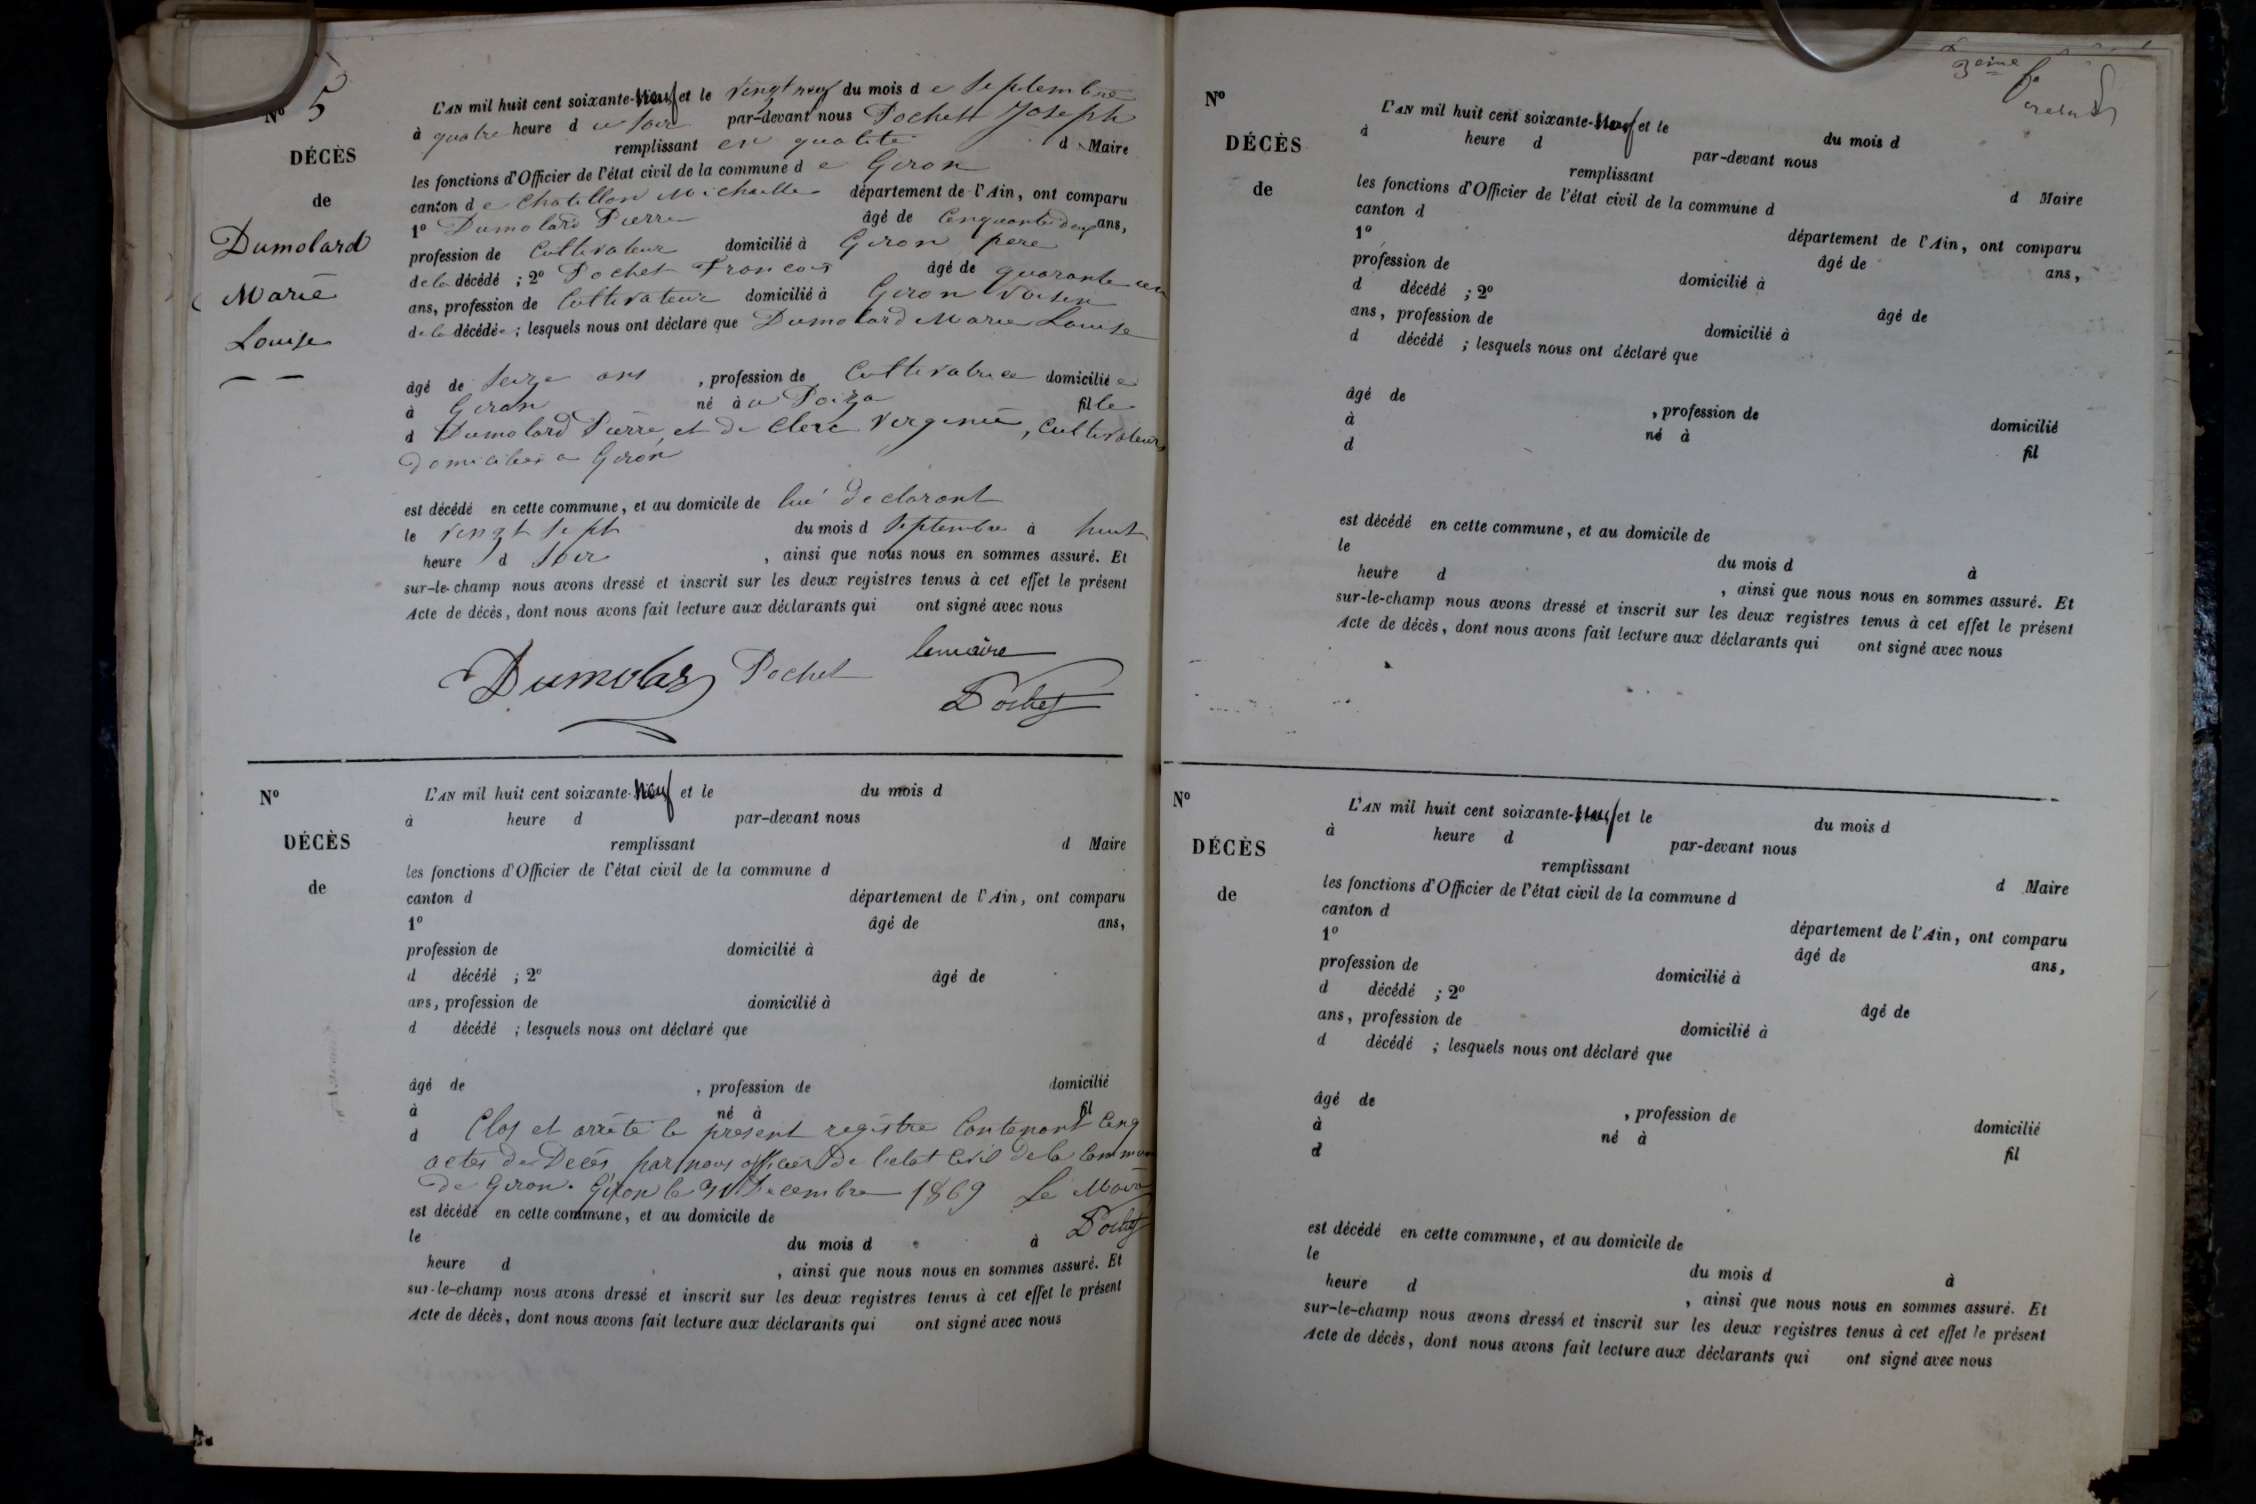 Nº 5
DÉCÈS
de
Dumolard
Marie
Louise
L'AN mil huit cent soixante-Neuf et le vingt neuf du mois d e Septembre
à quatre heure d u soir par-devant nous Pochet Joseph
remplissant en qualité d Maire
les fonctions d'Officier de l'état civil de la commune d e Giron
canton d e Chatillon Michaille département de l'Ain, ont comparu
1º Dumolard Pierre âgé de Cinquante deux ans,
profession de Cultivateur domicilié à Giron pere
de la décédé ; 2º Pochet Francois âgé de quarante un
ans, profession de Cultivateur domicilié à Giron voisin
de la décédée ; lesquels nous ont déclaré que Dumolard Marie Louise
âgé de Seize ans , profession de Cultivatrice domicilié e
à Giron né à u Poiza fille
d Dumolard Pierre, et de Clerc Vergenie, Cultivateurs
Domiciliés a Giron
est décédé en cette commune, et au domicile de lui déclarant
le vingt Sept du mois d Septembre à huit
heure d Soir , ainsi que nous nous en sommes assuré. Et
sur-le-champ nous avons dressé et inscrit sur les deux registres tenus à cet effet le présent
Acte de décès, dont nous avons fait lecture aux déclarants qui ont signé avec nous
Dumolar Pochet lemaire
Pochet
Nº
DÉCÈS
de
L'AN mil huit cent soixante-Neuf et le du mois d
à heure d par-devant nous
remplissant d Maire
les fonctions d'Officier de l'état civil de la commune d
canton d département de l'Ain, ont comparu
1º âgé de ans,
profession de domicilié à
d décédé ; 2º âgé de
ans, profession de domicilié à
d décédé ; lesquels nous ont déclaré que
âgé de , profession de domicilié
à né à fil
d Clos et arrêté le présent registre Contenant Cinq
actes de Décés, par nous officier De l'etat Civil de la Commune
de Giron. Giron le 31 Decembre 1869 Le Maire
est décédé en cette commune, et au domicile de Pochet
le du mois d à
heure d , ainsi que nous nous en sommes assuré. Et
sur-le-champ nous avons dressé et inscrit sur les deux registres tenus à cet effet le présent
Acte de décès, dont nous avons fait lecture aux déclarants qui ont signé avec nous
3eme
Nº
DÉCÈS
de
L'AN mil huit cent soixante-Neuf et le du mois d
à heure d par-devant nous
remplissant d Maire
les fonctions d'Officier de l'état civil de la commune d
canton d département de l'Ain, ont comparu
1º âgé de ans,
profession de domicilié à
d décédé ; 2º âgé de
ans, profession de domicilié à
d décédé ; lesquels nous ont déclaré que
âgé de , profession de domicilié
à né à fil
d
est décédé en cette commune, et au domicile de
le du mois d à
heure d , ainsi que nous nous en sommes assuré. Et
sur-le-champ nous avons dressé et inscrit sur les deux registres tenus à cet effet le présent
Acte de décès, dont nous avons fait lecture aux déclarants qui ont signé avec nous
Nº
DÉCÈS
de
L'AN mil huit cent soixante-Neuf et le du mois d
à heure d par-devant nous
remplissant d Maire
les fonctions d'Officier de l'état civil de la commune d
canton d département de l'Ain, ont comparu
1º âgé de ans,
profession de domicilié à
d décédé ; 2º âgé de
ans, profession de domicilié à
d décédé ; lesquels nous ont déclaré que
âgé de , profession de domicilié
à né à fil
d
est décédé en cette commune, et au domicile de
le du mois d à
heure d , ainsi que nous nous en sommes assuré. Et
sur-le-champ nous avons dressé et inscrit sur les deux registres tenus à cet effet le présent
Acte de décès, dont nous avons fait lecture aux déclarants qui ont signé avec nous